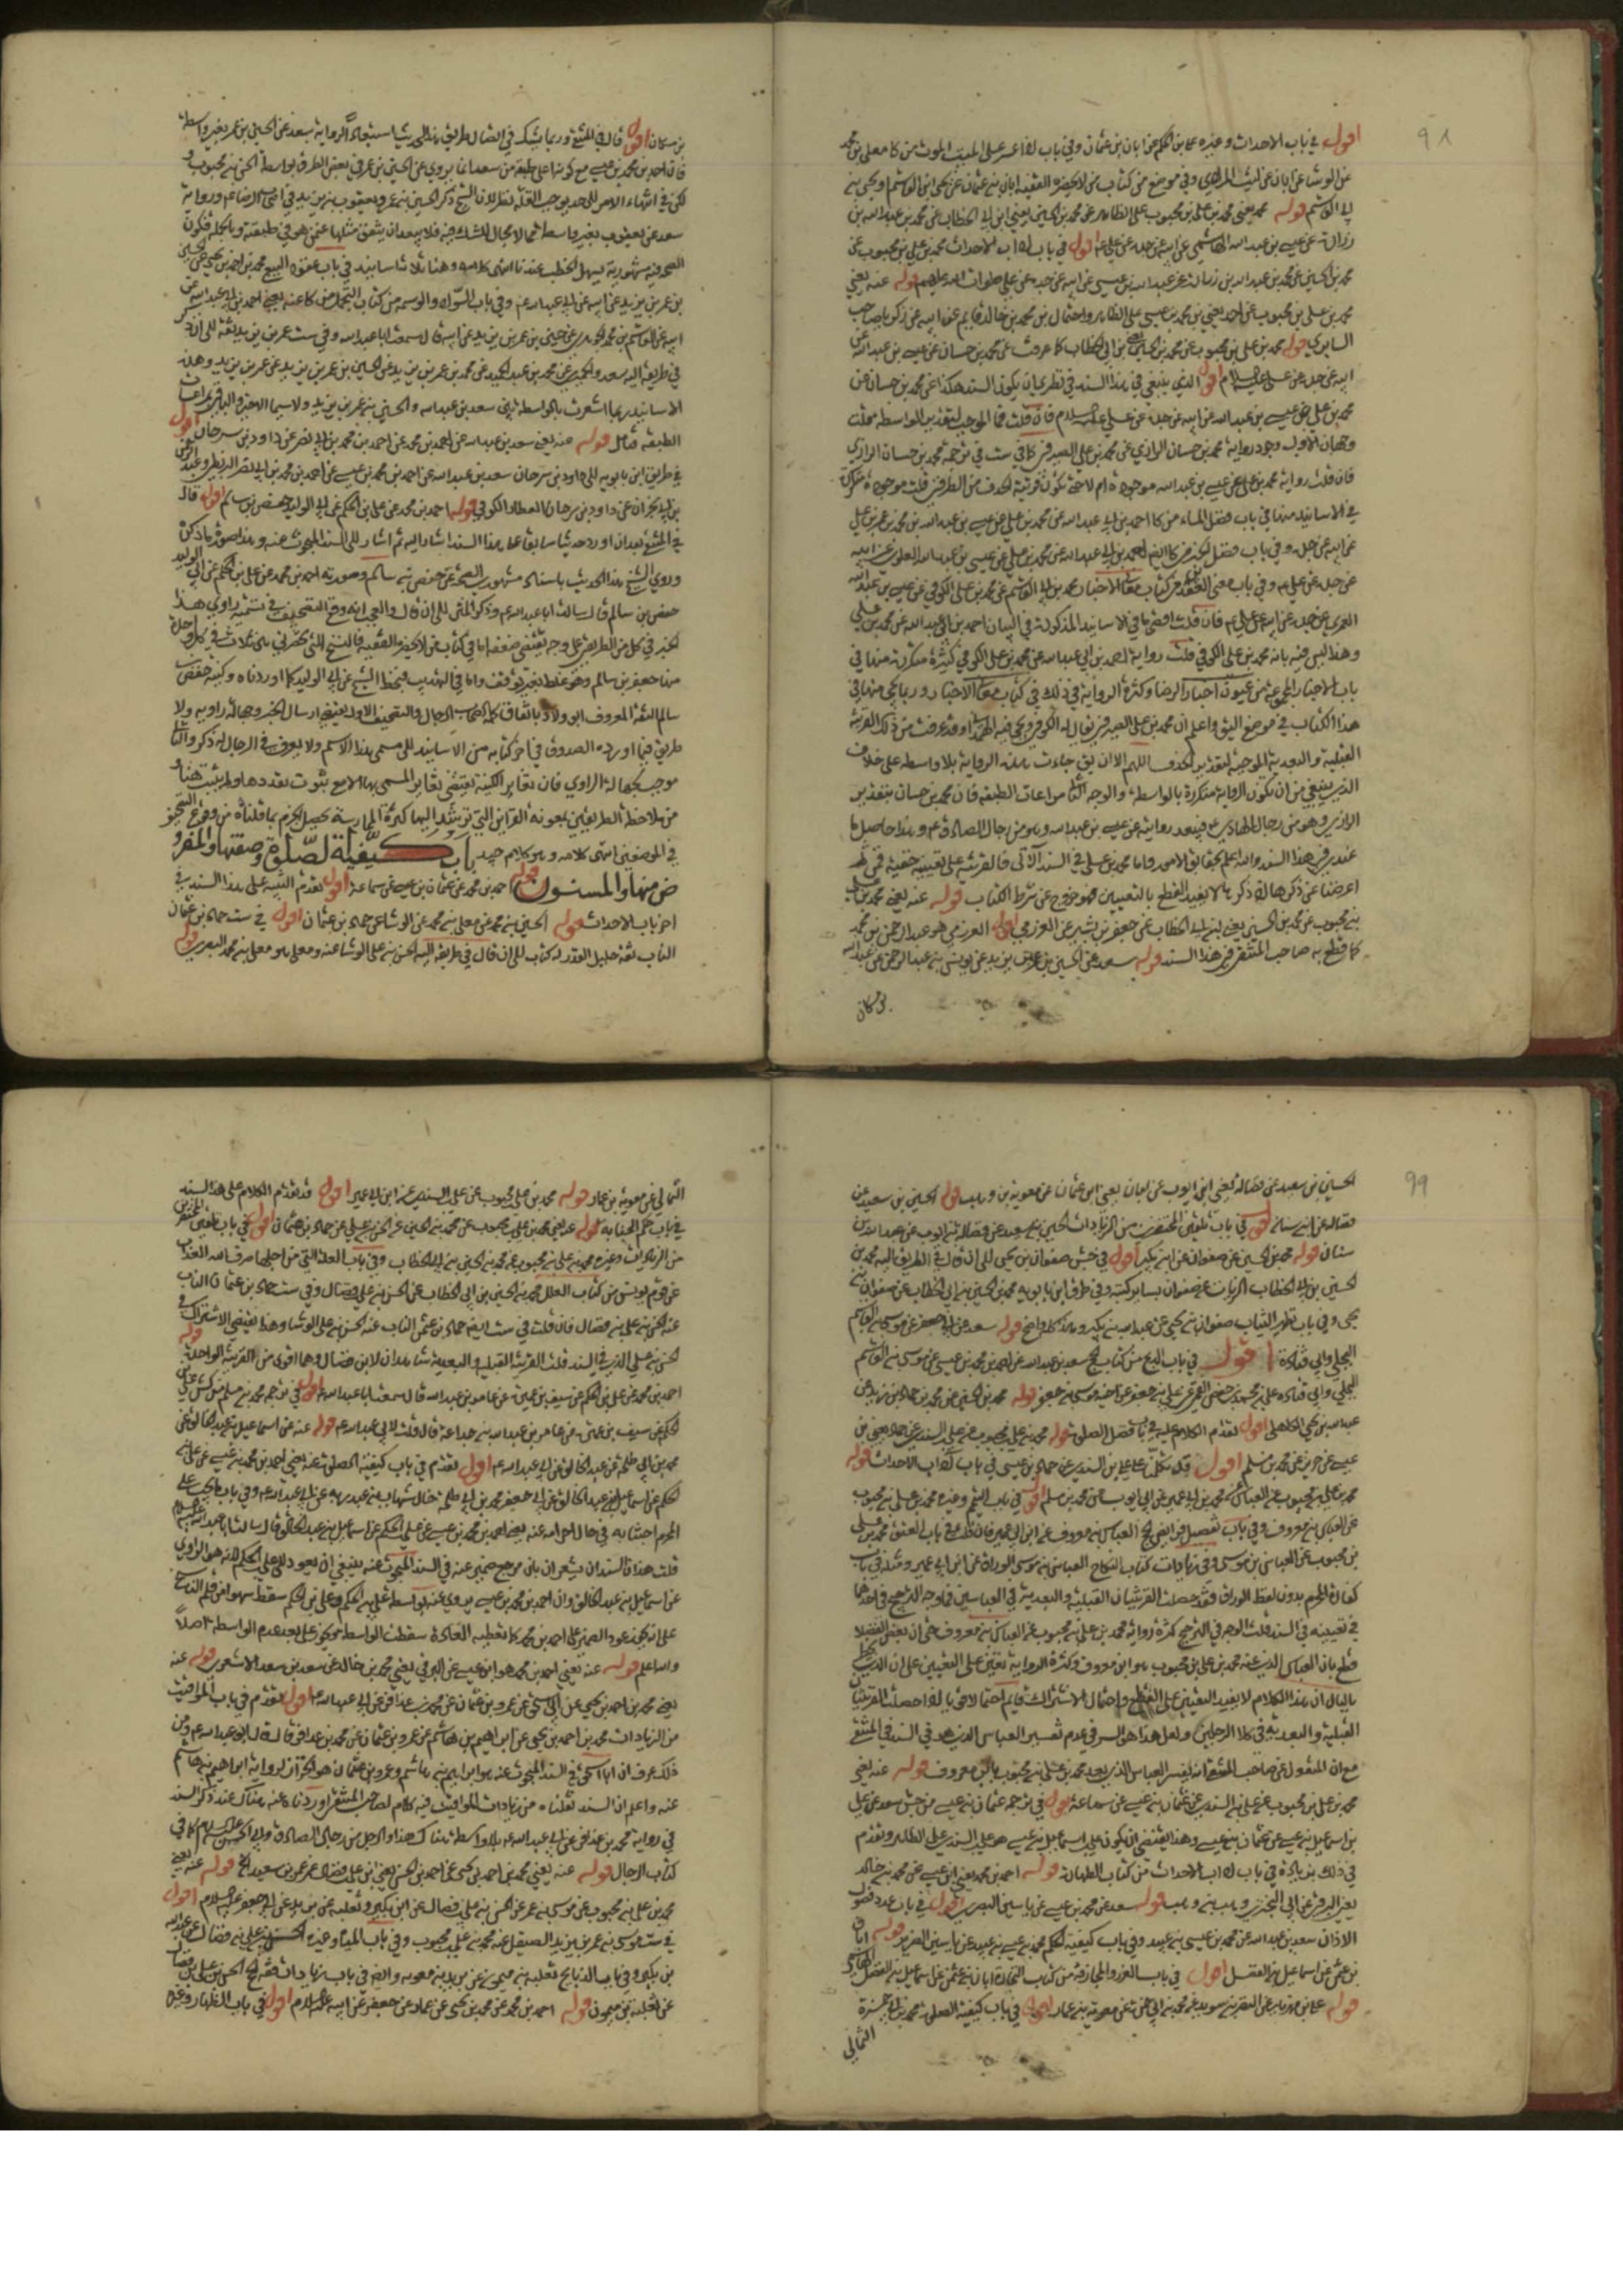 ٩٨
اقول في باب الاحداث وغيره علي بن الحكم عن ابان بن عثمان وفي باب
عن الوشا عن ابان عن ليث المرادي وفي موضع من كتاب من لا يحضره الفقيه ابان بن عثمان عن يحيى
قوله محمد يعني محمد بن علي بن محبوب على الظاهر عن محمد بن الحسين يعني ابن ابي الخطاب عن محمد بن عبد الله بن
زرارة عن عيسى بن عبد الله الهاشمي عن ابيه عن جده عن علي ع اقول في باب اداب الاحداث محمد بن علي بن محبوب عن
محمد بن الحسين عن محمد بن عبد الله بن زرارة عن عيسى بن عبد الله عن ابيه عن جده عن علي صلوات الله عليهم قوله عنه يعني
محمد بن علي بن محبوب عن احمد يعني بن محمد بن عيسى على الظاهر واحتمال بن محمد بن خالد قايم عن ابيه عن زكريا صاحب
السابري قوله محمد بن علي بن محبوب عن محمد بن الحسين بن ابي الخطاب كما عرفت عن محمد بن حسان عن عيسى بن عبد الله عن
ابيه عن جده عن علي عليه السلام اقول الذي ينبغي في هذا السند في نظري ان يكون السند هكذا عن محمد بن حسان عن
محمد بن علي عن عيسى بن عبد الله عن ابيه عن جده عن علي عليه السلام فان قلت فما الموجب لتقدير الواسطة قلت
وجهان الاول وجود رواية محمد بن حسان الرازي عن محمد بن علي الصيرفي كما في ست في ترجمة محمد بن حسان الرازي
فان قلت رواية محمد بن علي عن عيسى بن عبد الله موجودة ام لا حتى تكون قرينة الحذف من الطرفين قلت موجودة متكررة
في الاسانيد منها في باب فضل الماء من كا احمد بن ابي عبد الله عن محمد بن علي عن عيسى بن عبد الله بن محمد بن عمر بن علي
عن ابيه عن جده وفي باب فضل الخبز من كا ايضا احمد بن ابي عبد الله عن محمد بن علي عن عيسى بن عبد الله العلوي عن ابيه
عن جده عن علي ع وفي باب معنى من كتاب معاني الاخبار محمد بن ابي القاسم عن محمد بن علي الكوفي عن عيسى بن عبد الله
العمري عن جده عن ابيه عن علي ع فان قلت اقصى ما في الاسانيد المذكورة في البيان احمد بن ابي عبد الله عن محمد بن علي
وهذا ليس فيه بانه محمد بن علي الكوفي قلت رواية احمد بن ابي عبد الله عن محمد بن علي الكوفي كثيرة متكررة منها في
باب الاخبار المجموعة من عيون اخبار الرضا وكثرة الرواية في ذلك في كتاب معاني الاخبار وربما يجي منها في
هذا الكتاب في موضع اليق واعلم ان محمد بن علي الصيرفي يقال له الكوفي
القبلية والبعدية الموجبة لتقدير الحذف اللهم الا ان يق جاءت هذه الرواية بلا واسطة على خلاف
الذي ينبغي من ان تكون الرواية متكررة بالواسطة والوجه الثاني مراعات الطبقة فان محمد بن حسان
الرازي وهو من رجال الهادي ع فيبعد روايته عن عيسى بن عبد الله وهو من رجال الصادق ع وهذا حاصل ما
عندي في هذا السند والله اعلم بحقايق الامور واما محمد بن علي في السند الاتي فالقرينة على تعيينه خفية
اعرضنا عن ذكرها اذ ذكر ما لا يفيد القطع بالتعيين فهو خروج عن شرط الكتاب قوله عنه يعني محمد بن علي
بن محبوب عن محمد بن الحسين يعني ابن ابي الخطاب عن جعفر بن بشير عن العرزمي اقول العرزمي هو عبد الرحمن بن محمد
كما قطع به صاحب المنتقى في هذا السند قوله سعد عن الحسين بن عمر بن يزيد عن يونس بن عبد الرحمن عن عبد الله
بن مسكان
بن مسكان اقول قال في المنتقى وربما يشك في اتصال طريق هذا الحديث استبعادا لرواية سعد عن الحسين بن عمر بغير واسطة
فان احمد بن محمد بن عيسى مع كونه اعلى طبقة من سعد انما يروي عن الحسين بن عمر في بعض الطرق بواسطة الحسن بن محبوب
لكن في انتهاء الامر الى حد يوجب القلة نظر لان الشيخ ذكر الحسين بن عمر ويعقوب بن يزيد في اصحاب الرضا ع ورواية
سعد عن يعقوب بغير واسطة مما لا مجال للشك فيه فلا يبعد ان يتفق مثلها عمن هو في طبقته وبالجملة
بن عمر بن يزيد عن ابيه عن ابي عبد الله ع وفي باب السواك
ابيه عن القاسم بن محمد الجوهري عن حسين بن عمر بن يزيد عن ابيه قال سمعت ابا عبد الله وفي ست عمر بن يزيد ثقة الى ان قال
في طريقه اليه سعد والحميري عن محمد بن عبد الحميد عن محمد بن عمر بن يزيد عن الحسين بن عمر بن يزيد عن عمر بن يزيد وهذه
الاسانيد ربما اشعرت بالواسطة بين سعد بن عبد الله والحسين بن عمر بن يزيد ولا سيما الاخير والباقي مراعات
الطبقة فتامل قوله عنه يعني سعد بن عبد الله عن احمد بن محمد عن احمد بن محمد بن ابي نصر عن داود بن سرحان اقول
في طريق ابن بابويه الى داود بن سرحان سعد بن عبد الله عن احمد بن محمد بن عيسى عن احمد بن محمد بن ابي نصر البزنطي وعبد الرحمن
بن ابي نجران عن داود بن سرحان العطار الكوفي قوله احمد بن محمد عن علي بن الحكم عن ابي الوليد حفص بن سالم اقول قال
في المنتقى بعد ان اورد حديثا سابقا على هذا السند اشار اليه ثم اشار الى السند المبحوث عنه وهذا صورة ما ذكره
وروى الشيخ هذا الحديث باسناد مشهوري الصحة عن حفص بن سالم وصورته احمد بن محمد عن علي بن الحكم عن ابي الوليد
حفص بن سالم قال سالت ابا عبد الله ع وذكر المتن الى ان قال والعجب انه وقع التصحيف في تسمية راوي هذا
الخبر في كل من الطريقين على وجه يقتضي ضعفه اما في كتاب من لا يحضره الفقيه فالنسخ التي تحضرني
منها جعفر بن سالم وهو غلط بغير توقف واما في التهذيب فبخط الشيخ عن ابي الوليد كما اوردناه وكنية حفص بن
سالم الثقة المعروف ابو ولاد باتفاق كلمة اصحاب الرجال والتصحيف الاول يقتضي ارسال الخبر وجهالة راويه ولا
طريق فيما اورده الصدوق في اخر كتابه من الاسانيد الى مسمى بهذا الاسم ولا يعرف في الرجال له ذكر والثاني
موجب لجهالة الراوي فان تغاير الكنية يقتضي تغاير المسمى بها الا مع ثبوت تعددها ولم يثبت هنا
من ملاحظة الطريقين بمعونة القراين التي ترشد اليها كثرة الممارسة يحصل الجزم بما قلناه من وقوع التصحيف
في الموضعين انتهى كلامه وهو كلام جيد باب كيفية الصلوة وصفتها والمفرو
ض منها والمسنون قوله احمد بن محمد عن عثمان بن عيسى عن سماعة اقول تقدم التنبيه على هذا السند في
اخر باب الاحداث قوله الحسين بن محمد عن معلى بن محمد عن الوشا عن حماد بن عثمان اقول في ست حماد بن عثمان
الناب ثقة جليل القدر له كتاب الى ان قال في طريقه اليه الحسن بن علي الوشا عنه ومعلى هو معلى بن محمد البصري قوله
٩٩
الحسين بن سعيد عن فضالة يعني ابن ايوب عن ابان يعني ابن عثمان عن معوية بن وهب قوله الحسين بن سعيد عن
فضالة عن ابن سنان اقول في باب تلقين المحتضرين من الزيادات الحسين بن سعيد عن فضالة بن ايوب عن عبد الله بن
سنان قوله محمد بن الحسين عن صفوان عن ابن بكير اقول في ست صفوان بن يحيى الى ان قال في الطريق اليه محمد بن
الحسين بن ابي الخطاب الزيات عن صفوان بساير كتبه وفي طرق ابن بابويه محمد بن الحسين بن ابي الخطاب عن صفوان بن
يحيى وفي باب تطهير الثياب صفوان بن يحيى عن عبد الله بن بكير وهذا كله واضح قوله سعد عن ابي جعفر عن موسى بن القاسم
البجلي وابي قتادة اقول في باب الذبح من كتاب الحج سعد بن عبد الله عن احمد بن محمد بن عيسى عن موسى بن القاسم
البجلي وابي قتادة علي بن محمد بن حفص القمي عن علي بن جعفر عن اخيه موسى بن جعفر قوله محمد بن الحسين عن محمد بن حماد بن زيد عن
عبد الله بن يحيى الكاهلي اقول تقدم الكلام عليه في باب فضل الصلوة قوله محمد بن علي بن محبوب عن علي بن السندي عن حماد يعني بن
عيسى عن حريز عن محمد بن مسلم اقول قد تكلم على علي بن السندي عن حماد بن عيسى في باب اداب الاحداث قوله
محمد بن علي بن محبوب عن العباس عن محمد بن ابي عمير عن ابي ايوب عن محمد بن مسلم اقول في باب التيمم وغيره محمد بن علي بن محبوب
عن العباس بن معروف وفي باب تفصيل فرايض الحج العباس بن معروف عن ابن ابي عمير فان قلت في باب العتق محمد بن علي
بن محبوب عن العباس بن موسى وفي زيادات كتاب النكاح العباس بن موسى الوراق عن ابن ابي عمير ومثله في باب
كفارة المحرم بدون لفظ الوراق فقد حصلت القرينتان القبلية والبعدية في العباسين فما وجه الترجيح في احدهما
في تعيينه في السند قلت الوجه في الترجيح كثرة رواية محمد بن علي بن محبوب عن العباس بن معروف حتى ان بعض الفضلا
قطع بان العباس الذي عنه محمد بن علي بن محبوب هو ابن معروف وكثرة الرواية تعين على التعيين على ان الذي يخطر
بالبال ان هذا الكلام لا يفيد التعيين على القطع واحتمال الاشتراك قايم احتمالا قويا اذا حصلت القرينتان
القبلية والبعدية في كلا الرجلين ولعل هذا هو السر في عدم تفسير العباس الذي بعده في السند في المنتقى
مع ان المنقول عن صاحب المنتقى انه يفسر العباس الذي بعد محمد بن علي بن محبوب بابن معروف قوله عنه يعني
محمد بن علي بن محبوب عن علي بن السندي عن عثمان بن عيسى عن سماعة اقول في ترجمة عثمان بن عيسى من جش سعد عن علي
بن اسماعيل بن عيسى عن عثمان بن عيسى وهذا يقتضي ان يكون علي بن اسماعيل بن عيسى هو علي بن السندي على الظاهر وتقدم
في ذلك زيادة في باب اداب الاحداث من كتاب الطهارة قوله احمد بن محمد يعني ابن عيسى عن محمد بن خالد
يعني البرقي عن ابي البختري وهب بن وهب قوله سعد عن محمد بن عيسى عن ياسين البصري اقول في باب عدد فصول
الاذان سعد بن عبد الله عن محمد بن عيسى بن عبيد وفي باب كيفية الحكم محمد بن عيسى بن عبيد عن ياسين الضرير قوله ابان
بن عثمن عن اسماعيل بن الفضل اقول في باب الغرر والمجازفة من كتاب التجارة ابان بن عثمن عن اسماعيل بن الفضل الهاشمي
قوله علي بن مهزيار عن النضر بن سويد عن محمد بن ابي حمزة عن معوية بن عمار اقول في باب كيفية الصلوة محمد بن ابي حمزة
الثمالي
الثمالي عن معوية بن عمار قوله محمد بن علي بن محبوب عن علي بن السندي عن ابن ابي عمير اقول قد تقدم الكلام على هذا السند
في باب حكم الجنابة قوله عنه يعني محمد بن علي بن محبوب عن محمد بن الحسين عن الحسن بن علي عن حماد بن عثمان اقول في باب تلقين المحتضرين
من الزيادات وغيره محمد بن علي بن محبوب عن محمد بن الحسين بن ابي الخطاب وفي باب العلة التي من اجلها صرف الله العذاب
عن قوم يونس من كتاب العلل محمد بن الحسين بن ابي الخطاب عن الحسن بن علي بن فضال وفي ست حماد بن عثمان الناب
عنه الحسن بن علي بن فضال فان قلت في ست ايضا حماد بن عثمن الناب عنه الحسن بن علي الوشا وهذا يقتضي الاشتراك في
الحسن بن علي الذي في السند قلت القرينة القبلية والبعدية شاهدان لابن فضال وهما اقوى من القرينة الواحدة قوله
احمد بن محمد عن علي بن الحكم عن سيف بن عميرة عن عامر بن عبد الله قال سمعت ابا عبد الله ع اقول في ترجمة
الحكم عن سيف بن عميرة عن عامر بن عبد الله بن جذاعة قال قلت لابي عبد الله ع قوله عنه عن اسماعيل بن عبد الخالق عن
محمد بن ابي طلحة عن عبد الخالق عن ابي عبد الله ع اقول تقدم في باب كيفية الصلوة عنه يعني احمد بن محمد بن عيسى عن علي بن
الحكم عن اسماعيل بن عبد الخالق عن ابي جعفر محمد بن ابي طلحة خال شهاب بن عبد ربه عن ابي عبد الله ع وفي باب ما يجب على
المحرم اجتنابه في حال احرامه عنه يعني احمد بن محمد بن عيسى عن علي بن الحكم عن اسماعيل بن عبد الخالق قال سالت ابا عبد الله عليه السلام
قلت هذان السندان يشعران بان مرجع ضمير عنه في السند المبحوث عنه ينبغي ان يعود الى علي بن الحكم لانه هو الراوي
عن اسماعيل بن عبد الخالق وان احمد بن محمد بن عيسى يروي عنه بواسطة علي بن الحكم وعلي بن الحكم سقط سهوا من قلم الناسخ
على انه يمكن عود الضمير الى احمد بن محمد كما تعطيه القاعدة سقطت الواسطة ويمكن على بعد عدم الواسطة اصلا
والله اعلم قوله عنه يعني احمد بن محمد هو ابن عيسى عن البرقي يعني محمد بن خالد عن سعد بن سعد الاشعري قوله عنه
يعني محمد بن احمد بن يحيى عن ابي اسحق عن عمرو بن عثمان عن محمد بن عذافر عن ابي عبد الله ع اقول تقدم في باب المواقيت
من الزيادات محمد بن احمد بن يحيى عن ابراهيم بن هاشم عن عمرو بن عثمان عن محمد بن عذافر قال قال ابو عبد الله ع ومن
ذلك عرف ان ابا اسحق في السند المبحوث عنه هو ابراهيم بن هاشم وعمرو بن عثمان هو الخزاز لرواية ابراهيم بن هاشم
عنه واعلم ان السند نقلناه من زيادات المواقيت فيه كلام لصاحب المنتقى اوردناه عنه هناك عند ذكر السند
في رواية محمد بن عذافر عن ابي عبد الله ع بلا واسطة هناك هذا والرجل من رجال الصادق وابي الحسن عليه السلام كما في
كتاب الرجال قوله عنه يعني محمد بن احمد بن يحيى عن احمد بن الحسن يعني ابن علي بن فضال عن عمرو بن سعيد الخ قوله عنه يعني
محمد بن علي بن محبوب عن موسى بن عمر عن الحسن بن علي بن فضال عن ابن بكير وثعلبة عن بريد عن ابي جعفر عليه السلام اقول
في ست موسى بن عمر بن يزيد الصيقل عنه محمد بن علي بن محبوب وفي باب المياه وغيره الحسن بن علي بن فضال عن عبد الله
بن بكير وفي باب الذبايح ثعلبة بن ميمون عن بريد بن معوية والضه في باب زيادات فقه الحج الحسن بن علي بن فضال
عن ثعلبة بن ميمون قوله احمد بن محمد عن محمد بن يحيى عن عمار عن جعفر عن ابيه عليه السلام اقول في باب الظهار وغيره